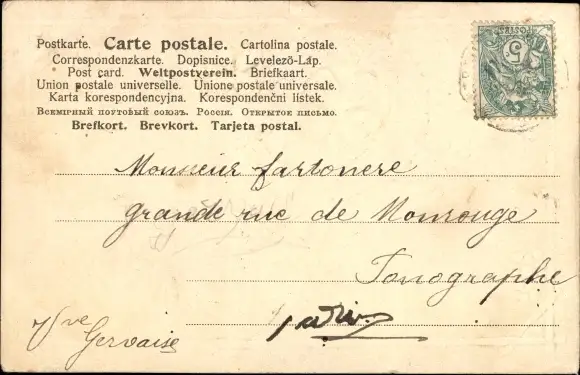 Postkarte. Carte postale. Cartolina postale.
Correspondenzkarte. Dopisnice. Levelezö-Láp.
Post card. Weltpostverein. Briefkaart.
Union postale universelle. Unione postale universale.
Karta korespondencyjna. Korespondenčni listek.
Всемірный почтовый союзъ. Россія. Открытое письмо.
Brefkort. Brevkort. Tarjeta postal.
POSTES
5
Monsieur Fartonere
grande rue de Monrouge
Tonographe
Gervaise